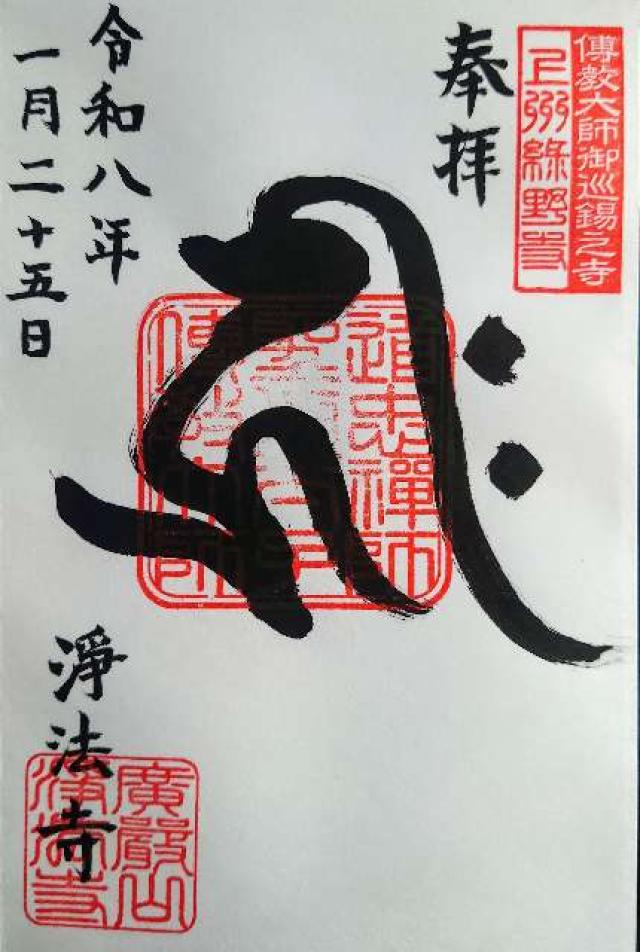 傳教大師御巡錫之寺
上州綠野寺
奉拝
𑖮𑖿𑖨𑖱𑖾
道忠禪師
傳教大師
令和八年
一月二十五日
淨法寺
廣嚴山
淨法寺